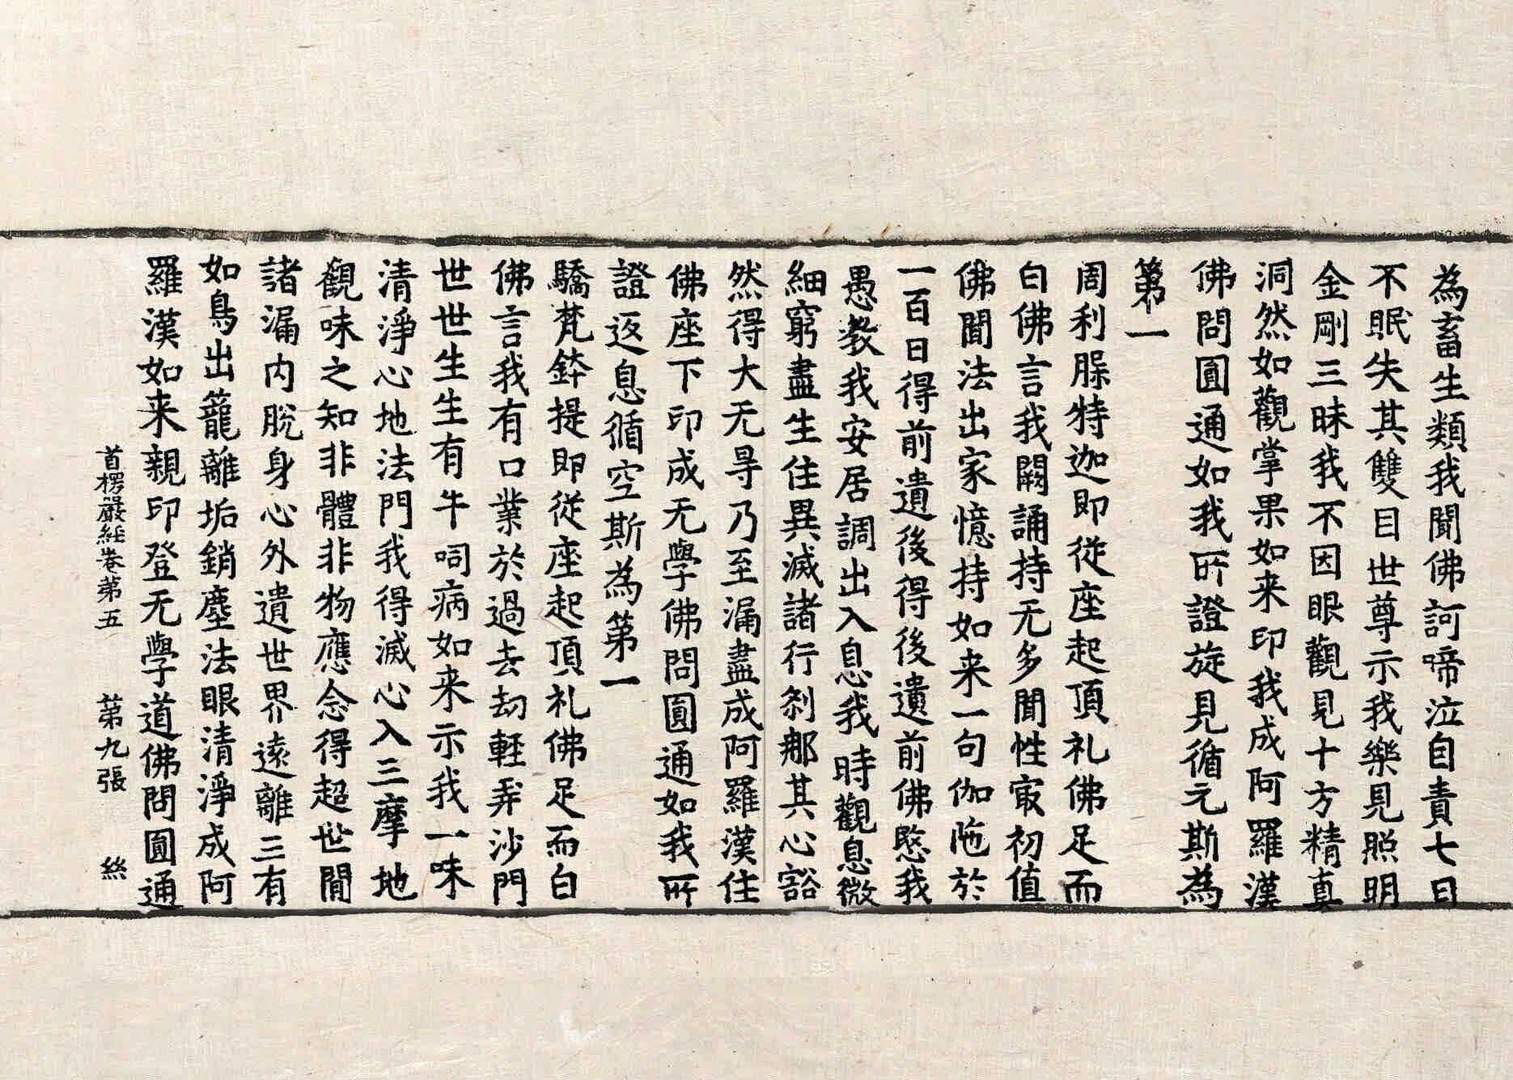 為畜生類我聞佛訶啼泣自責七日
不眠失其雙目世尊示我樂見照明
金剛三昧我不因眼觀見十方精真
洞然如觀掌果如来印我成阿羅漢
佛問圓通如我所證旋見循元斯為
第一
周利脲特迦即從座起頂礼佛足而
白佛言我闕誦持无多聞性㝡初值
佛聞法出家憶持如来一句伽陁於
一百日得前遺後得後遺前佛愍我
愚教我安居調出入息我時觀息微
細窮盡生住異滅諸行刹那其心豁
然得大无㝵乃至漏盡成阿羅漢住
佛座下印成无學佛問圓通如我所
證返息循空斯為第一
驕梵鉢提即從座起頂礼佛足而白
佛言我有口業於過去劫輕弄沙門
世世生生有牛呞病如来示我一味
清淨心地法門我得滅心入三摩地
觀味之知非體非物應念得超世閒
諸漏内脫身心外遺世界遠離三有
如鳥出籠離垢銷塵法眼清淨成阿
羅漢如来親印登无學道佛問圓通
首楞嚴經卷第五 第九張 絲